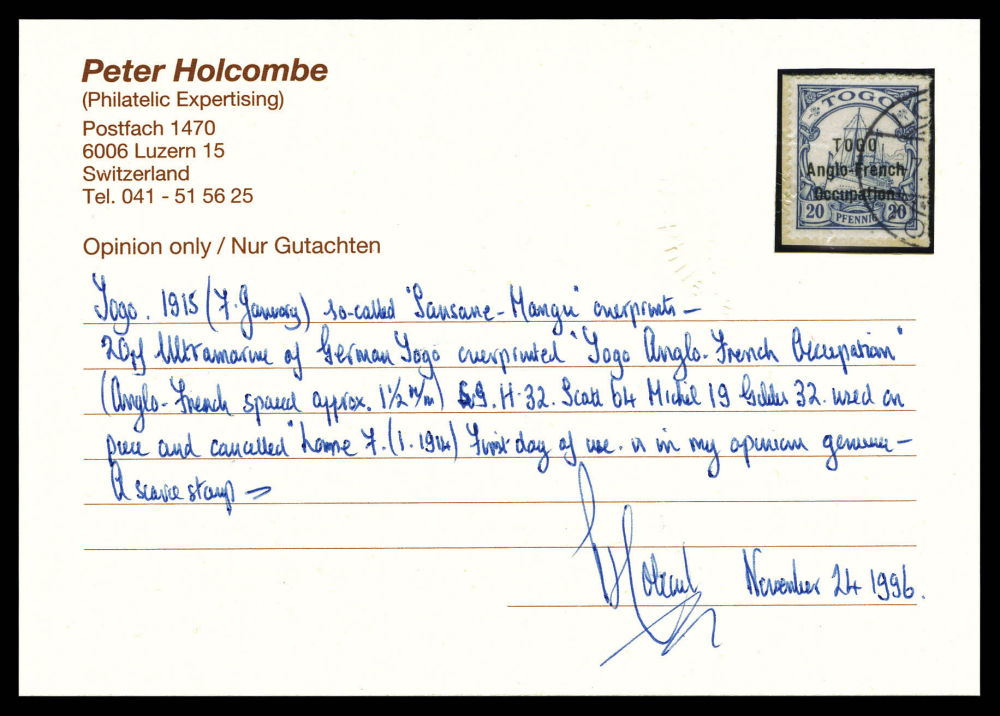 Peter Holcombe
(Philatelic Expertising)
Postfach 1470
6006 Luzern 15
Switzerland
Tel. 041 - 51 56 25
Opinion only / Nur Gutachten
TOGO
TOGO
Anglo-French
Occupation
20 PFENNIG 20
Togo. 1915 (7. January) so-called "Sansane-Mangu" overprints –
20pf Ultramarine of German Togo overprinted "Togo Anglo-French Occupation"
(Anglo-French spaced approx. 1½ m/m) SG. H.32. Scott 64 Michel 19 Gibbs 32. used on
piece and cancelled "Lome 7.(1.1914) First day of use. is in my opinion genuine –
A scarce stamp –
November 24 1996.